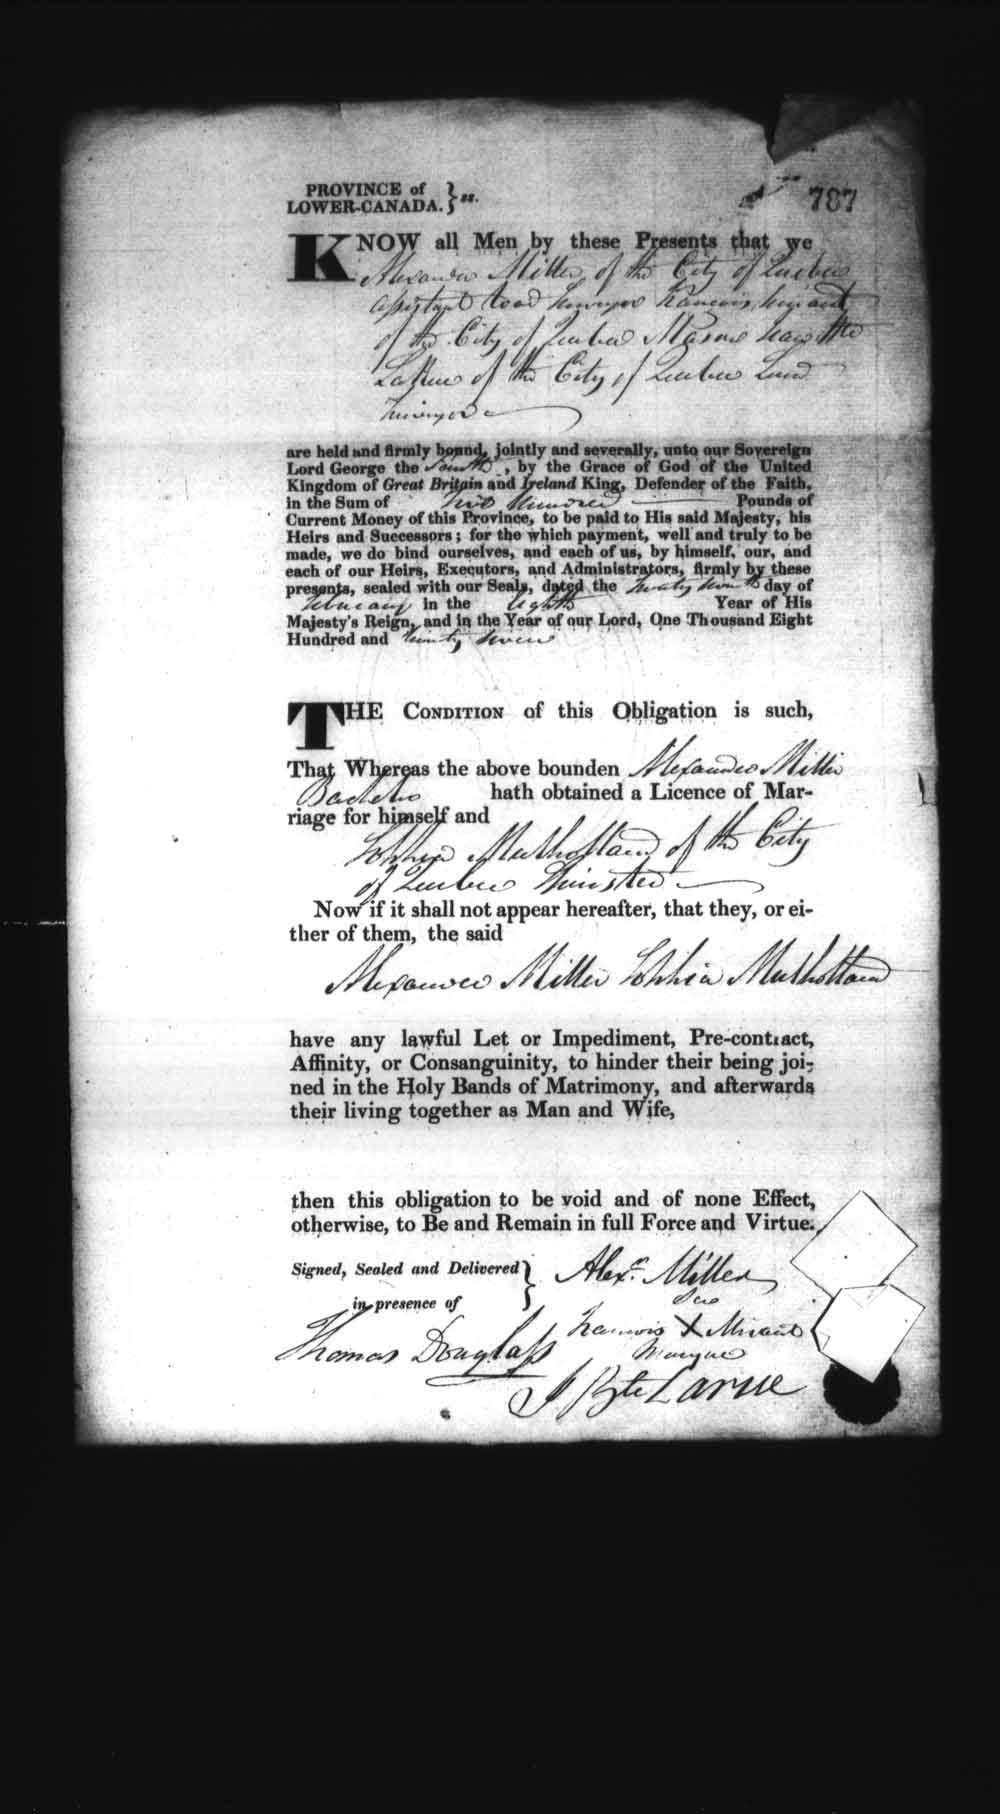 PROVINCE of
LOWER-CANADA. } ss.
787
KNOW all Men by these Presents that we
Alexander Miller of the City of Quebec
assistant road Surveyor Francois
of the City of Quebec Mason
LaRue of the City of Quebec Land
Surveyor
are held and firmly bound, jointly and severally, unto our Sovereign
Lord George the Fourth, by the Grace of God of the United
Kingdom of Great Britain and Ireland King, Defender of the Faith,
in the Sum of Two Hundred Pounds of
Current Money of this Province, to be paid to His said Majesty, his
Heirs and Successors; for the which payment, well and truly to be
made, we do bind ourselves, and each of us, by himself, our, and
each of our Heirs, Executors, and Administrators, firmly by these
presents, sealed with our Seals, dated the Twenty seventh day of
February in the Eighth Year of His
Majesty's Reign, and in the Year of our Lord, One Thousand Eight
Hundred and twenty seven
THE CONDITION of this Obligation is such,
That Whereas the above bounden Alexander Miller
Bachelor hath obtained a Licence of Mar-
riage for himself and
Sophia Mulholland of the City
of Quebec Spinster
Now if it shall not appear hereafter, that they, or ei-
ther of them, the said
Alexander Miller Sophia Mulholland
have any lawful Let or Impediment, Pre-contract,
Affinity, or Consanguinity, to hinder their being joi-
ned in the Holy Bands of Matrimony, and afterwards
their living together as Man and Wife,
then this obligation to be void and of none Effect,
otherwise, to Be and Remain in full Force and Virtue.
Signed, Sealed and Delivered }
in presence of
Alexr. Miller
Sa
Francois X
Marque
Thomas Douglass
J Bte Larue